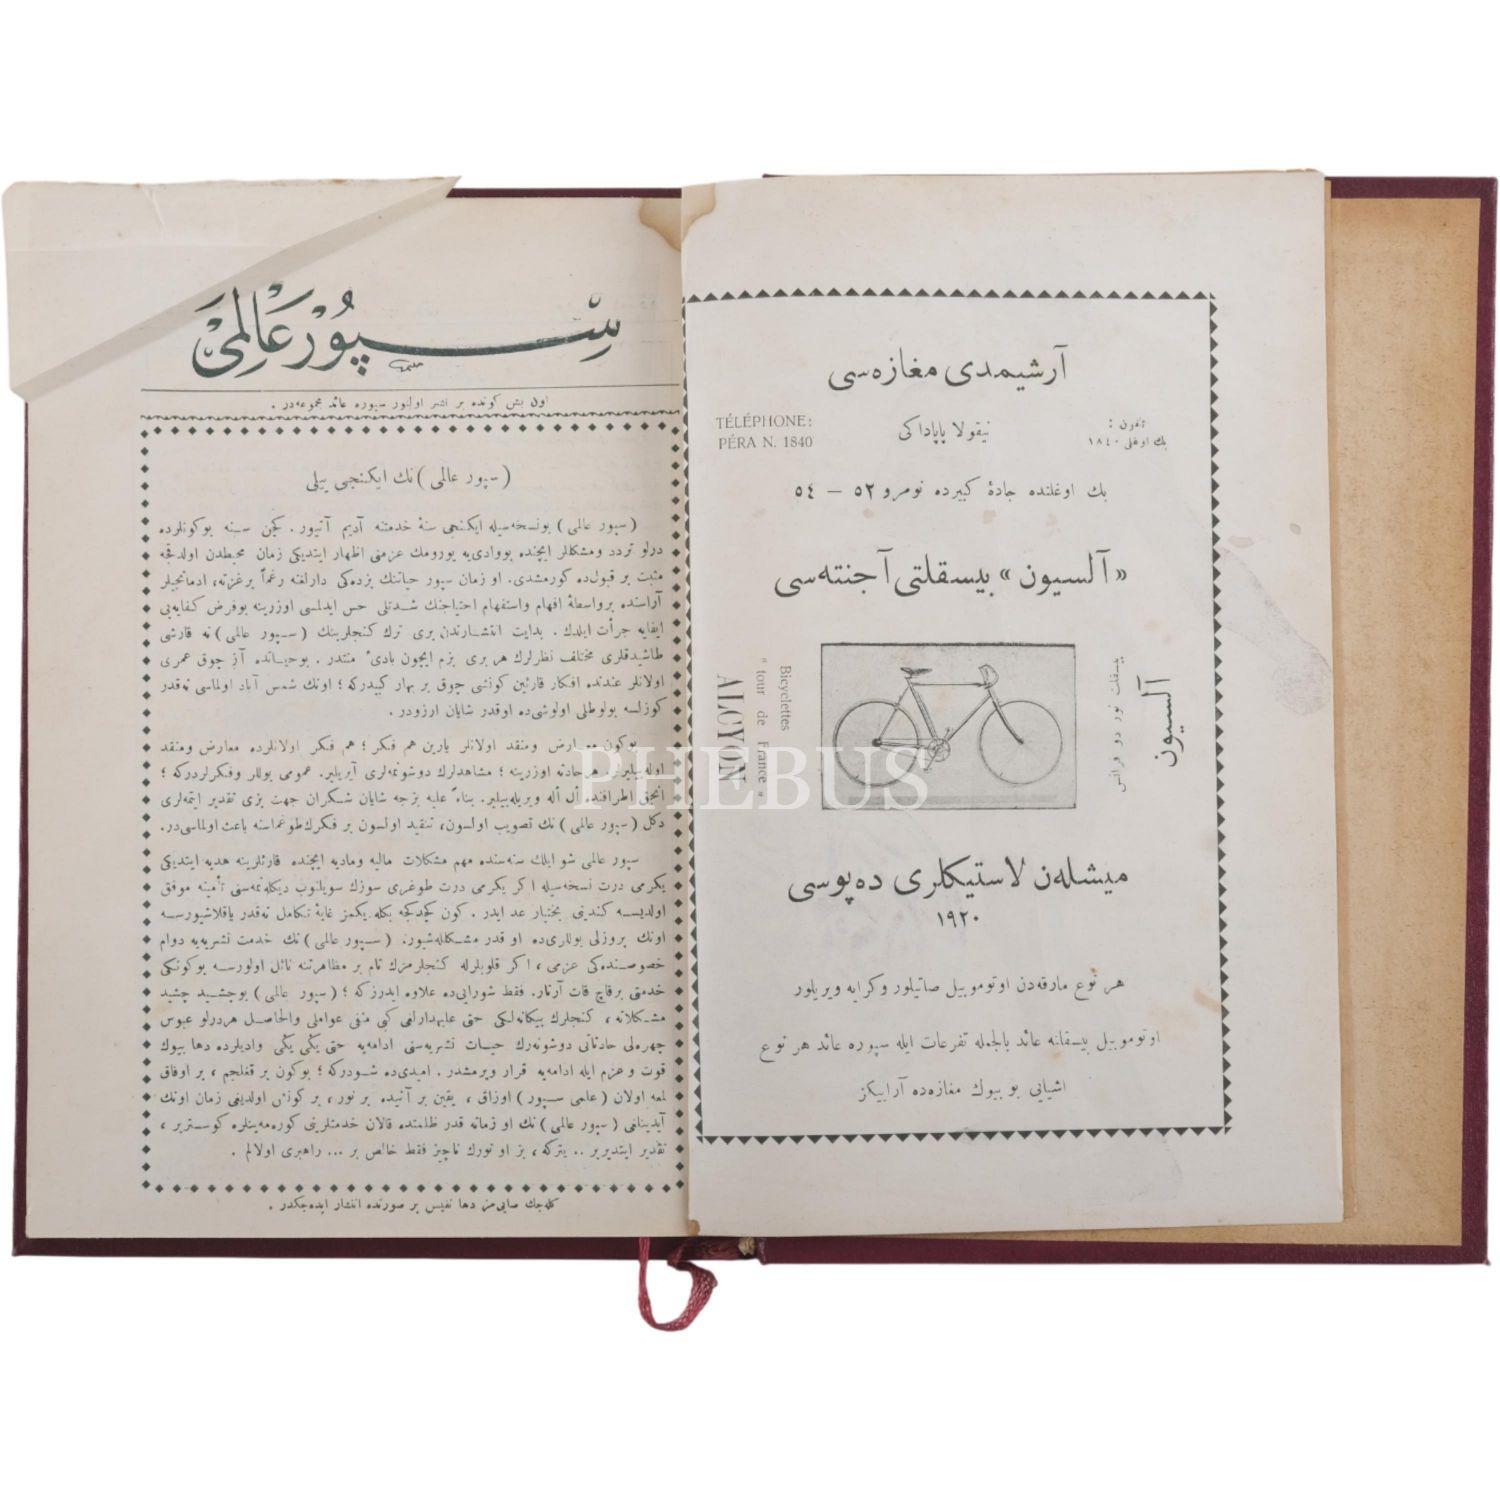 سپور عالمی
اون بش كونده بر نشر اولنور سپوره عائد مجموعه‌در .
( سپور عالمی ) نك ایكنجی ییلی
( سپور عالمی ) بونسخه‌سیله ایكنجی سنهٔ خدمتنه آدیم آتیور . كچن سنه بوكونلرده
درلو تردد ومشكلار ایچنده بووادی‌یه یورومك عزمنی اظهار ایتدیكی زمان محیطدن اولدقجه
مثبت بر قبول‌ده كورمشدی. او زمان سپور حیاتنك بزده‌كی دارلغنه رغماً برغزته، ادمانجیلر
آراسنده برواسطهٔ افهام واستفهام احتیاجنك شدتلی حس ایدلمسی اوزرینه بوفرض كفایه‌یی
ایفایه جرأت ایلدك . بدایت انتشارندن بری ترك كنجلرینك ( سپور عالمی ) نه قارشی
طاشیدقلری مختلف نظرلرك هر بری بزم ایچون بادیٔ منتدر . بوحیاتده آز چوق عمری
اولانلر عندنده افكار قارئین كونشی چوق بر بهار كبیدركه ؛ اونك شمس آباد اولماسی نه‌قدر
كوزلسه بولوطلی اولوشی‌ده اوقدر شایان ارزودر .
بوكون معارض ومنقد اولانلر یارین هم فكر ؛ هم فكر اولانلرده معارض ومنقد
اوله‌بیلیر. هرحادثه اوزرینه ؛ مشاهدلرك دوشونمه‌لری آیریلیر. عمومی یوللر وفكرلردركه ؛
انجق اطرافنده أل أله ویریله‌بیلیر. بناءً علیه بزجه شایان شكران جهت بزی تقدیر ایتمه‌لری
دكل ( سپور عالمی ) نك تصویب اولسون، تنقید اولسون بر فكرك طوغماسنه باعث اولماسی‌در.
سپور عالمی شو ایلك سنه‌سنده مهم مشكلات مالیه ومادیه ایچنده قارئلرینه هدیه ایتدیكی
یكرمی درت نسخه‌سیله اكر یكرمی درت طوغری سوزك سویلنوب دیكله‌نمه‌سنی تأمینه موفق
اولدیسه كندینی بختیار عد ایدر . كون كچدكجه بكله‌یكمز غایهٔ تكامل نه‌قدر یاقلاشیورسه
اونك پروزلی یوللری‌ده او قدر مشكلله‌شیور. ( سپور عالمی ) نك خدمت نشریه‌یه دوام
خصوصنده‌كی عزمی ، اكر قلوبلرله كنجلرمزك تام بر مظاهرتنه نائل اولورسه بوكونكی
خدمتی برقاچ قات آرتار. فقط شورایی‌ده علاوه ایدرزكه ؛ ( سپور عالمی ) بوچشید چشید
مشكلاته ، كنجلرك بیكانه‌لكی حتی علیهدارلغی كبی منفی عواملی والحاصل هردرلو عبوس
چهره‌لی حادثاتی دوشونه‌رك حیات نشریه‌سنی ادامه‌یه حتی یكی یكی وادیلرده دها بیوك
قوت و عزم ایله ادامه‌یه قرار ویرمشدر . امیدی‌ده شودركه ؛ بوكون بر قغلجم ، بر اوفاق
لمعه اولان ( عالمی سپور ) اوزاق ، یقین بر آتیده بر نور ، بر كونش اولدیغی زمان اونك
آیدینلغی ( سپور عالمی ) نك او زمانه قدر ظلمتده قالان خدمتلرینی كوره‌مه‌ینلره كوستریر ،
تقدیر ایتدیریر .. یتركه ، بز او نورك ناچیز فقط خالص بر ... راهبری اولالم .
كله‌جك صایی‌مز دها نفیس بر صورتده انتشار ایده‌جكدر .
آرشیمدی مغازه‌سی
TÉLÉPHONE:
PÉRA N. 1840
نیقولا پاپاداكی
تلفون :
بك اوغلی ١٨٤٠
بك اوغلنده جادهٔ كبیرده نومرو ٥٢ – ٥٤
«آلسیون» بیسقلتی آجنته‌سی
Bicyclettes
" tour de France "
ALCYON
بیسقلت تور دو فرانس
آلسیون
میشله‌ن لاستیكلری ده‌پوسی
١٩٢٠
هر نوع مارقه‌دن اوتوموبیل صاتیلور وكرایه ویریلور
اوتوموبیل بیسقلته عائد بالجمله تفرعات ایله سپوره عائد هر نوع
اشیایی بو بیوك مغازه‌ده آرابیكز
PHEBUS